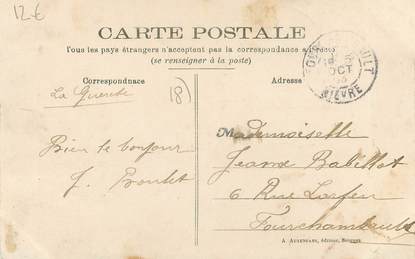 12 €
CARTE POSTALE
Tous les pays étrangers n'acceptent pas la correspondance au recto
(se renseigner à la poste)
Correspondnace
La Guerche
18)
Bien le bonjour
Adresse
OCT
NIÈVRE
Mademoiselle
Jeanne Babillot
6 Rue
Fourchambault